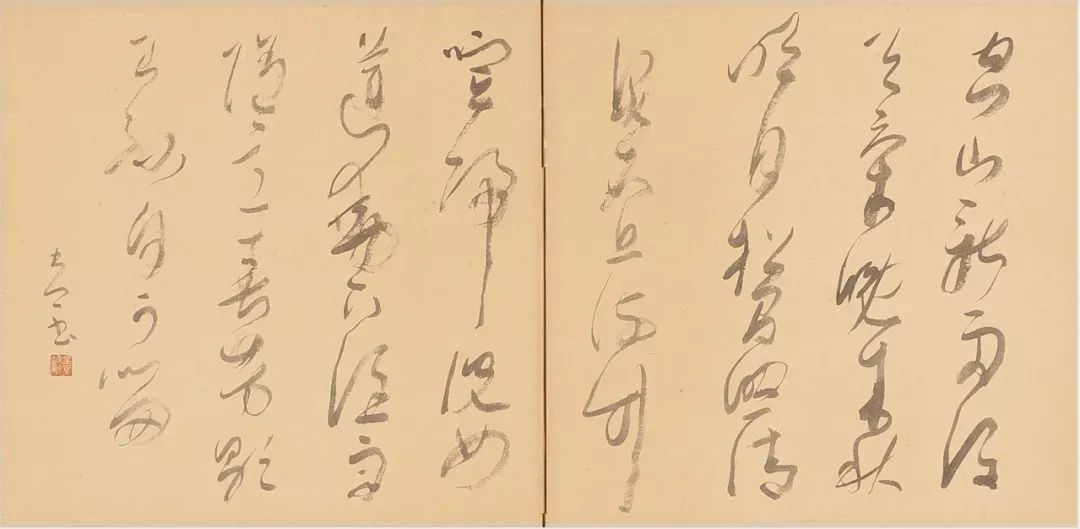 空山新雨後
天氣晚來秋
明月松間照清
泉石上流竹
喧歸浣女
蓮動下漁舟
隨意春芳歇
王孫自可留
書